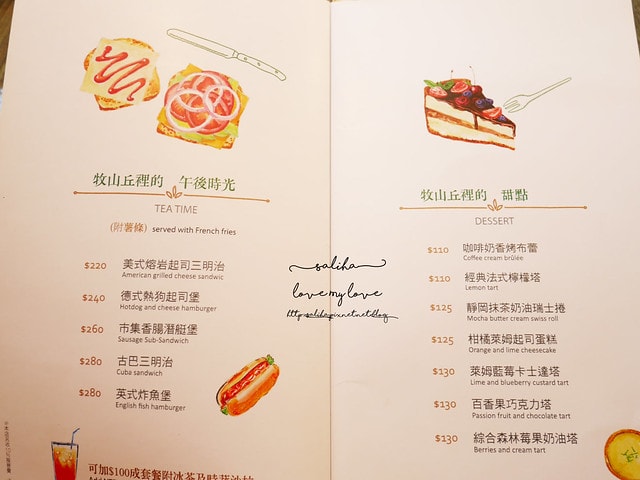 牧山丘裡的 午後時光
TEA TIME
(附薯條) served with French fries
$220 美式熔岩起司三明治
American grilled cheese sandwic
$240 德式熱狗起司堡
Hotdog and cheese hamburger
$260 市集香腸潛艇堡
Sausage Sub-Sandwich
$280 古巴三明治
Cuba sandwich
$280 英式炸魚堡
English fish hamburger
可加$100成套餐附冰茶及時蔬沙拉
牧山丘裡的 甜點
DESSERT
$110 咖啡奶香烤布蕾
Coffee cream brûlée
$110 經典法式檸檬塔
Lemon tart
$125 靜岡抹茶奶油瑞士捲
Mocha butter cream swiss roll
$125 柑橘萊姆起司蛋糕
Orange and lime cheesecake
$130 萊姆藍莓卡士達塔
Lime and blueberry custard tart
$130 百香果巧克力塔
Passion fruit and chocolate tart
$130 綜合森林莓果奶油塔
Berries and cream tart
saliha
love my love